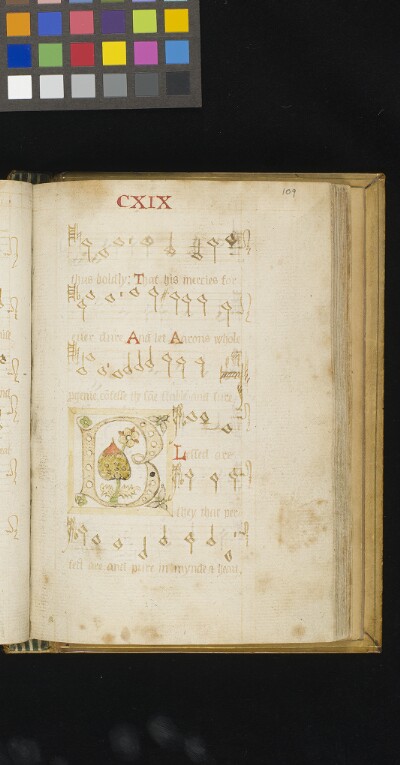 CXIX
109
thus boldly: That his mercies for
ever dure And let Aarons whole
B Lessed are
they that per
fest are and pure in mynde & hart,